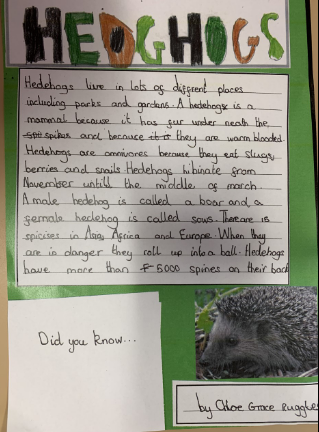 HEDGHOGS
Hedehogs live in lots of different places
including parks and gardens. A hedehogs is a
mammal because it has fur under neath the
spikes and because it is they are warm blooded.
Hedehogs are omnivores because they eat slugs,
berries and snails. Hedehogs hibinate from
November untill the middle of march.
A male hedehog is called a boar and a
female hedehog is called sows. There are 15
spicises in Asia, Africa and Europe. When they
are in danger they roll up into a ball. Hedehogs
have more than 5000 spines on their back
Did you know...
by Chloe Grace Ruggles